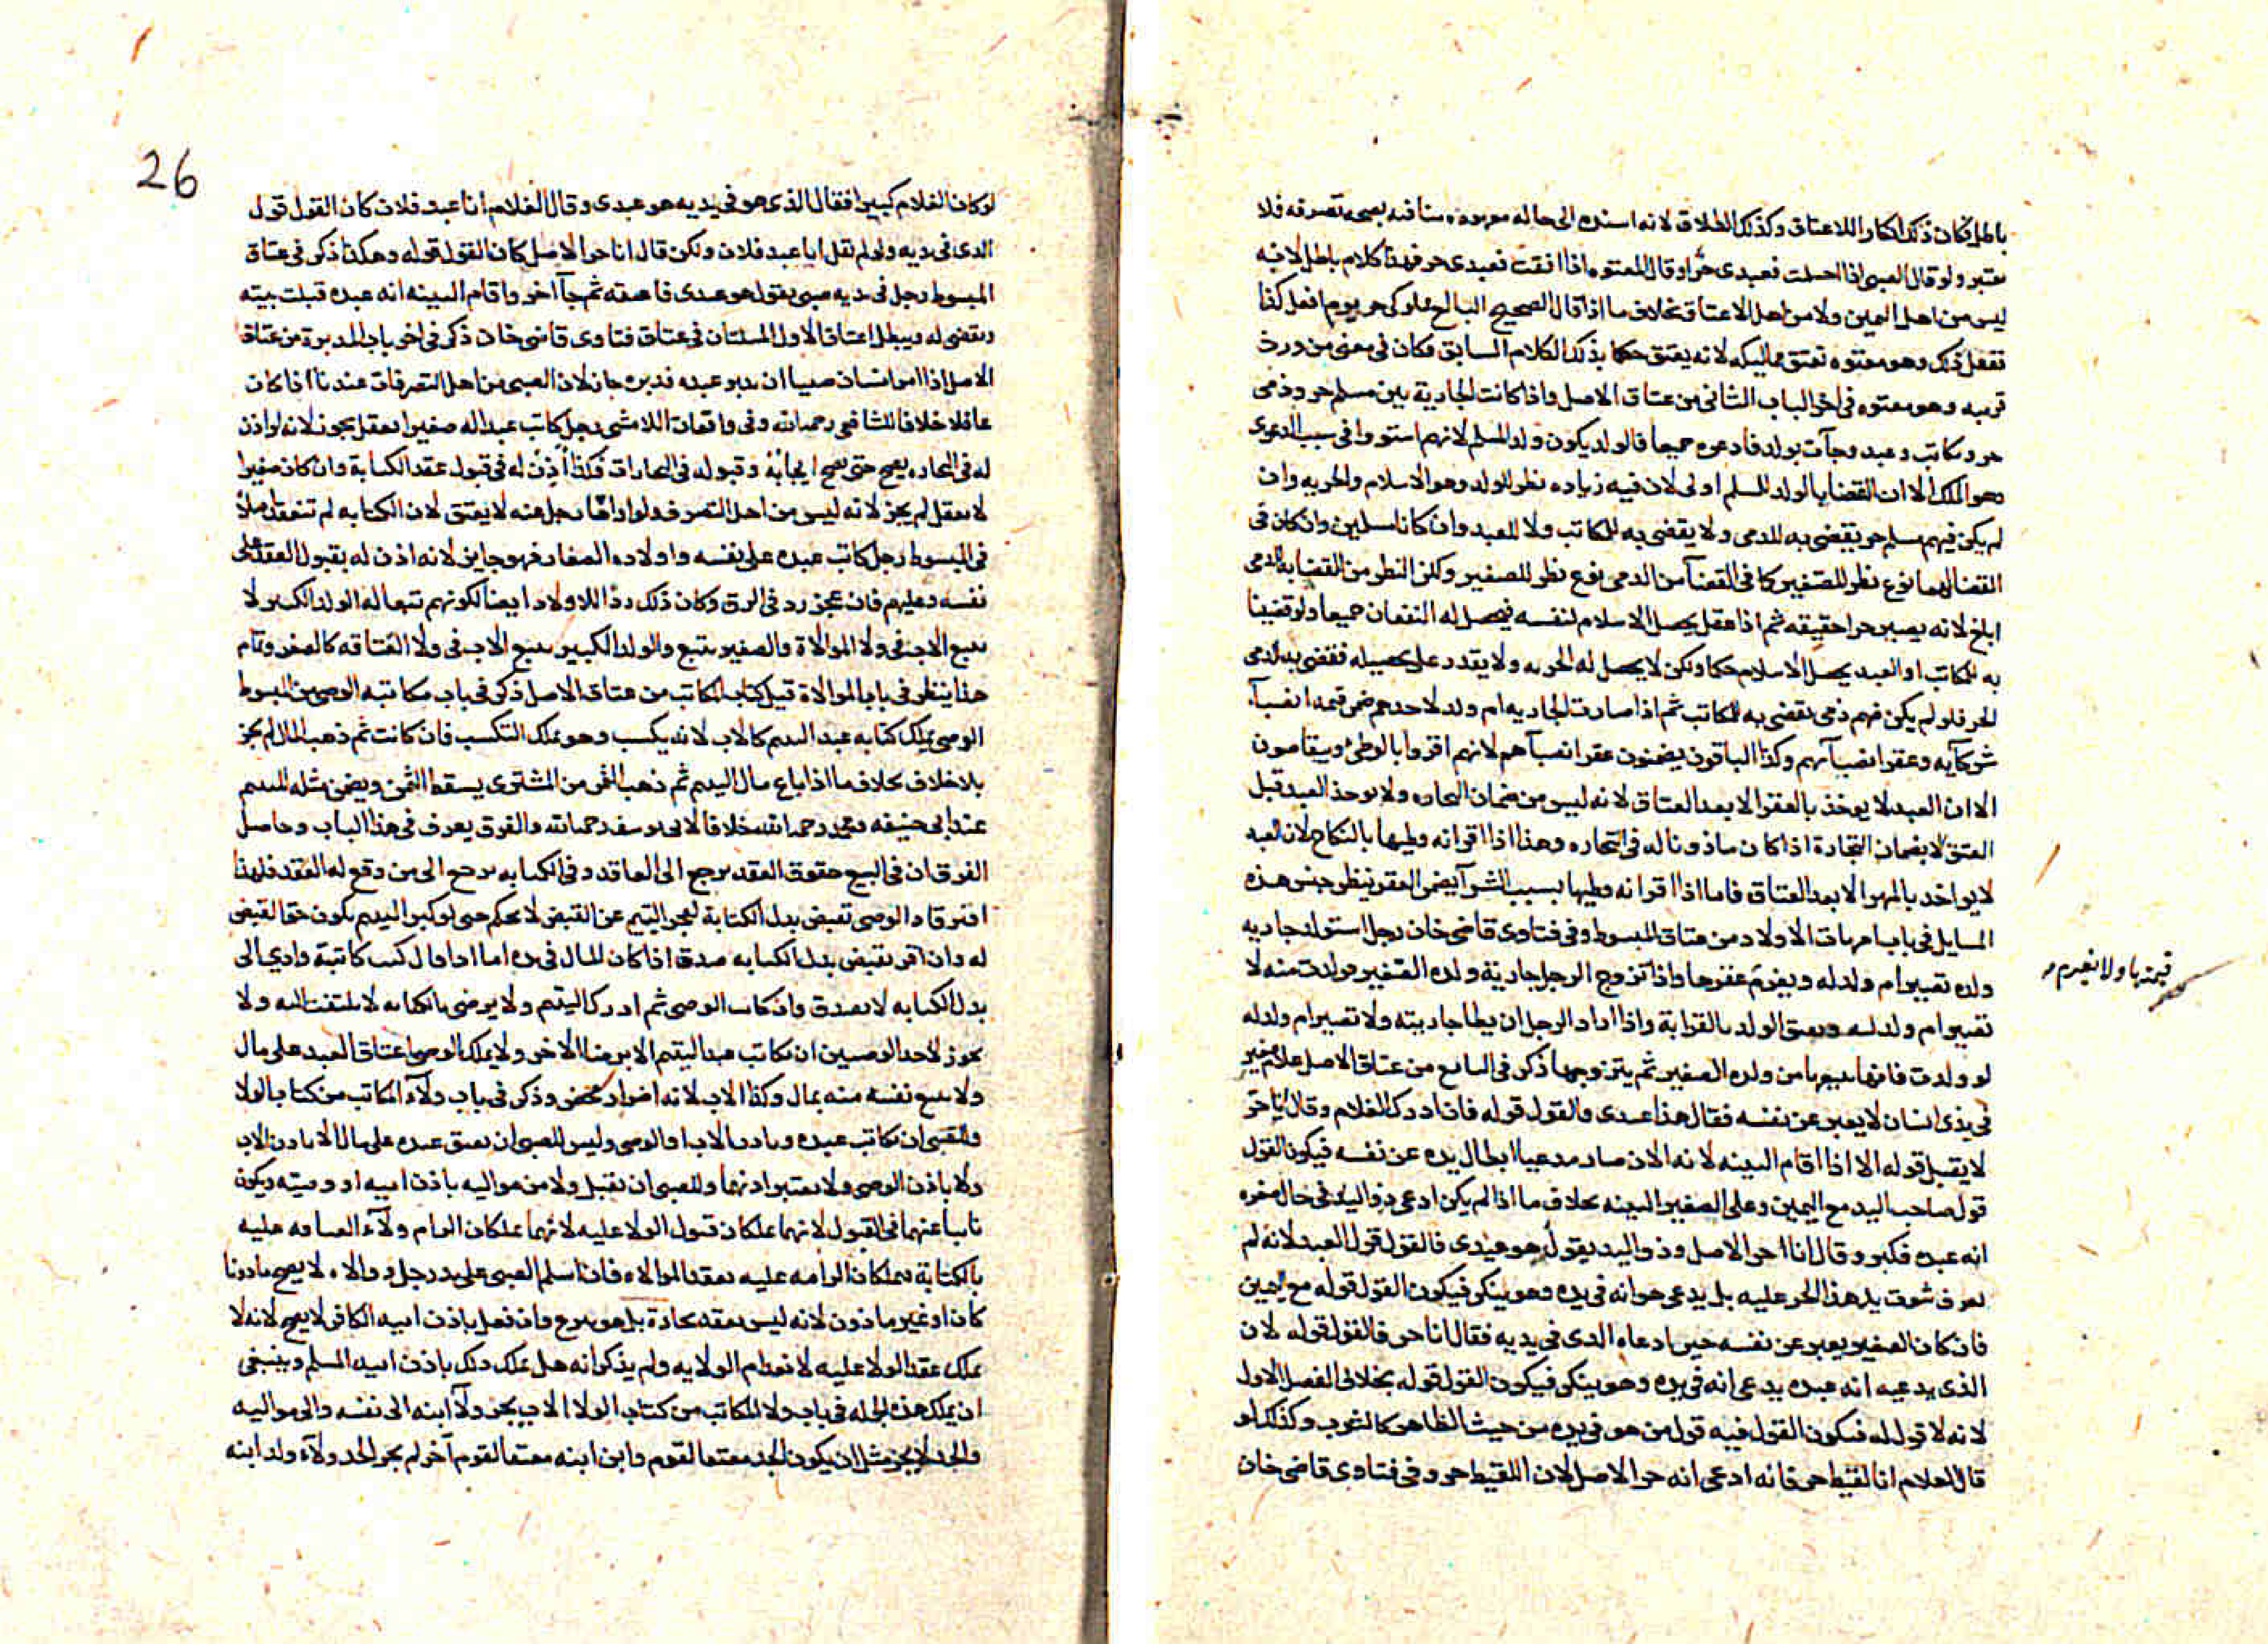 باطلا فكان ذلك انكارا للاعتاق وكذلك الطلاق لانه اسنده الى حاله معهوده منافيه بصحه تصرفه فلا
يعتبر ولو قال الصبى اذا احتلمت فعبدى حر او قال المعتوه اذا افقت فعبدى حر فهذا كلام باطل لانه
ليس من اهل اليمين ولا من اهل الاعتاق بخلاف ما اذا قال الصحيح البالغ مملوكى حر يوم افعل كذا
ففعل ذلك وهو معتوه تعتق مماليكه لانه يعتق حكما بذلك الكلام السابق فكان فى معنى من ورث
قريبه وهو معتوه فى اخر الباب الثانى من عتاق الاصل واذا كانت الجارية بين مسلم حر وذمى
حر ومكاتب وعبد وجآت بولد فادعوه جميعا فالولد يكون ولد المسلم لانهم استووا فى سبب الدعوى
وهو الملك الا ان القضا بالولد للمسلم اولى لان فيه زياده نظر للولد وهو الاسلام والحريه وان
لم يكن فيهم مسلم حر يقضى به للذمى ولا يقضى به للمكاتب ولا للعبد وان كانا مسلمين وان كان فى
القضا لهما نوع نظر للصغير كما فى القضآ من الذمى نوع نظر للصغير ولكن النظر من القضا به للذمى
ابلغ لانه يصير حرا حقيقه ثم اذا عقل يحصل الاسلام لنفسه فيحصل له النفعان جميعا ولو قضينا
به للمكاتب او العبد يحصل الاسلام حكما ولكن لا يحصل له الحريه ولا يقدر على تحصيله فقضى به للذمى
الحر فلو لم يكن فيهم ذمى يقضى به للمكاتب ثم اذا صارت الجاريه ام ولد لاحدهم ضمن قيمه انصبآ
شركآيه وعقر انصبآيهم وكذا الباقون يضمنون عقر انصبآهم لانهم اقروا بالوطئ ويتقاصون
الا ان العبد لا يوخذ بالعقر الا بعد العتاق لانه ليس من ضمان التجاره ولا يوخذ العبد قبل
العتق الا بضمان التجارة اذا كان ماذونا له فى التجاره وهذا اذا اقر انه وطيها بالنكاح لان العبد
لا يواخذ بالمهر الا بعد العتاق فاما اذا اقر انه وطيها بسبب الشرآ يضمن العقر ينظر جنس هذه
المسايل فى باب امهات الاولاد من عتاق المبسوط وفى فتاوى قاضى خان رجل استولد جاريه
ولده تصير ام ولد له ويغرم عقرها واذا تزوج الرجل جارية ولده الصغير فولدت منه لا
قيمتها ولا يغرم
تصير ام ولد له ويعتق الولد بالقرابة واذا اراد الرجل ان يطا جاريته ولا تصير ام ولد له
لو ولدت فانه يبيعها من ولده الصغير ثم يتزوجها ذكر فى السابع من عتاق الاصل غلام صغير
فى يدى انسان لا يعبر عن نفسه فقال هذا عبدى فالقول قوله فان ادرك الغلام وقال انا حر
لا يقبل قوله الا اذا اقام البينه لانه الان صار مدعيا ابطال يده عن نفسه فيكون القول
قول صاحب اليد مع اليمين وعلى الصغير البينه بخلاف ما اذا لم يكن ادعى ذو اليد فى حال صغره
انه عبده فكبر وقال انا حر الاصل وذو اليد يقول هو عبدى فالقول قول العبد لانه لم
يعرف ثبوت يد هذا الحر عليه بل يدعى هو انه فى يده وهو ينكر فيكون القول قوله مع اليمين
فان كان الصغير يعبر عن نفسه حين ادعاه الذى فى يديه فقال انا حر فالقول قوله لان
الذى يدعيه انه عبده يدعى انه فى يده وهو ينكر فيكون القول قوله بخلاف الفصل الاول
لانه لا قول له فيكون القول فيه قول من هو فى يده من حيث الظاهر كالثوب وكذلك لو
قال الغلام انا لقيط حر فانه ادعى انه حر الاصل لان اللقيط حر وفى فتاوى قاضى خان
26
لو كان الغلام كبيرا فقال الذى هو فى يديه هو عبدى وقال الغلام انا عبد فلان كان القول قول
الذى فى يديه ولو لم يقل انا عبد فلان ولكن قال انا حر الاصل كان القول قوله وهكذا ذكر فى عتاق
المبسوط رجل فى يديه صبى يقول هو عبدى فاعتقه ثم جآ اخر واقام البينه انه عبده قبلت بينته
ويقضى له ويبطل اعتاق الاول المسلتان فى عتاق فتاوى قاضى خان ذكر فى اخر باب المدبرة من عتاق
الاصل اذا امر انسان صبيا ان يدبر عبده فدبره جاز لان الصبى من اهل التصرفات عندنا اذا كان
عاقلا خلافا للشافعى رحمه الله وفى واقعات اللامشى رجل كاتب عبدا له صغيرا يعقل يجوز لانه لو اذن
له فى التجاره يصح حتى يصح ايجابه وقبوله فى التجارات فكذا اذن له فى قبول عقد الكتابة وان كان صغيرا
لا يعقل لم يجز لانه ليس من اهل التصرف ولو اداها رجل عنه لا يعتق لان الكتابه لم تنعقد اصلا
فى المبسوط رجل كاتب عبده على نفسه واولاده الصغار فهو جايز لانه اذن له بقبول العقد على
نفسه وعليهم فان عجز رد فى الرق وكان ذلك ردا للاولاد ايضا لكونهم تبعا له الولد الكبير لا
يتبع الاب فى ولا الموالاة والصغير يتبع والولد الكبير يتبع الاب فى ولا العتاقه كالصغير وتمام
هذا ينظر فى باب الموالاة قبيل كتاب المكاتب من عتاق الاصل ذكر فى باب مكاتبه الوصى من المبسوط
الوصى يملك كتابه عبد اليتيم كالاب لانه يكسب وهو يملك التكسب فان كانت ثم ذهب المال لم يجز
بلا خلاف بخلاف ما اذا باع مال اليتيم ثم ذهب الثمن من المشترى يسقط الثمن ويضمن مثله لليتيم
عند ابى حنيفه ومحمد رحمهما الله خلافا لابى يوسف رحمه الله والفرق يعرف فى هذا الباب وحاصل
الفرق ان فى البيع حقوق العقد يرجع الى العاقد وفى الكتابه يرجع الى من وقع له العقد فلهذا
افترقا والوصى بقبض بدل الكتابة لعجز اليتيم عن القبض لا بحكم حتى لو كبر اليتيم يكون حق القبض
له وان اقر بقبض بدل الكتابه صدق اذا كان المال فى يده اما اذا قال كنت كاتبته وادى الى
بدل الكتابه لا يصدق وان كاتب الوصى ثم ادرك اليتيم ولا يرضى بالكتابه لا يلتفت اليه ولا
يجوز لاحد الوصيين ان يكاتب عبد اليتيم الا برضا الاخر ولا يملك الوصى اعتاق العبد على مال
ولا بيع نفسه منه بمال وكذا الاب لانه اضرار محض وذكر فى باب ولآء المكاتب من كتاب الولا
وللصبى ان يكاتب عبده باذن الاب او الوصى وليس للصبى ان يعتق عبده على مال الا باذن الاب
ولا باذن الوصى ولا يعتبر اذنهما وللصبى ان يقبل ولا من مواليه باذن ابيه او وصيه ويكون
نايبا عنهما فى القبول لانهما يملكان قبول الولا عليه لانهما يملكان الزام ولآء العتاقه عليه
بالكتابة فيملكان الزامه عليه بعقد الموالاه فان اسلم الصبى على يد رجل ووالاه لا يصح ماذونا
كان او غير ماذون لانه ليس بعقد تجارة بل هو تبرع وان فعل باذن ابيه الكافر لا يصح لانه لا
يملك عقد الولا عليه لانعدام الولايه ولم يذكر انه هل يملك ذلك باذن ابيه المسلم وينبغى
ان يملك هذه الجمله فى باب ولا المكاتب من كتاب الولا الاب يجر ولآ ابنه الى نفسه والى مواليه
والجد لا يجر مثل ان يكون الجد معتقا لقوم وابن ابنه معتقا لقوم آخر لم يجر الجد ولآء ولد ابنه